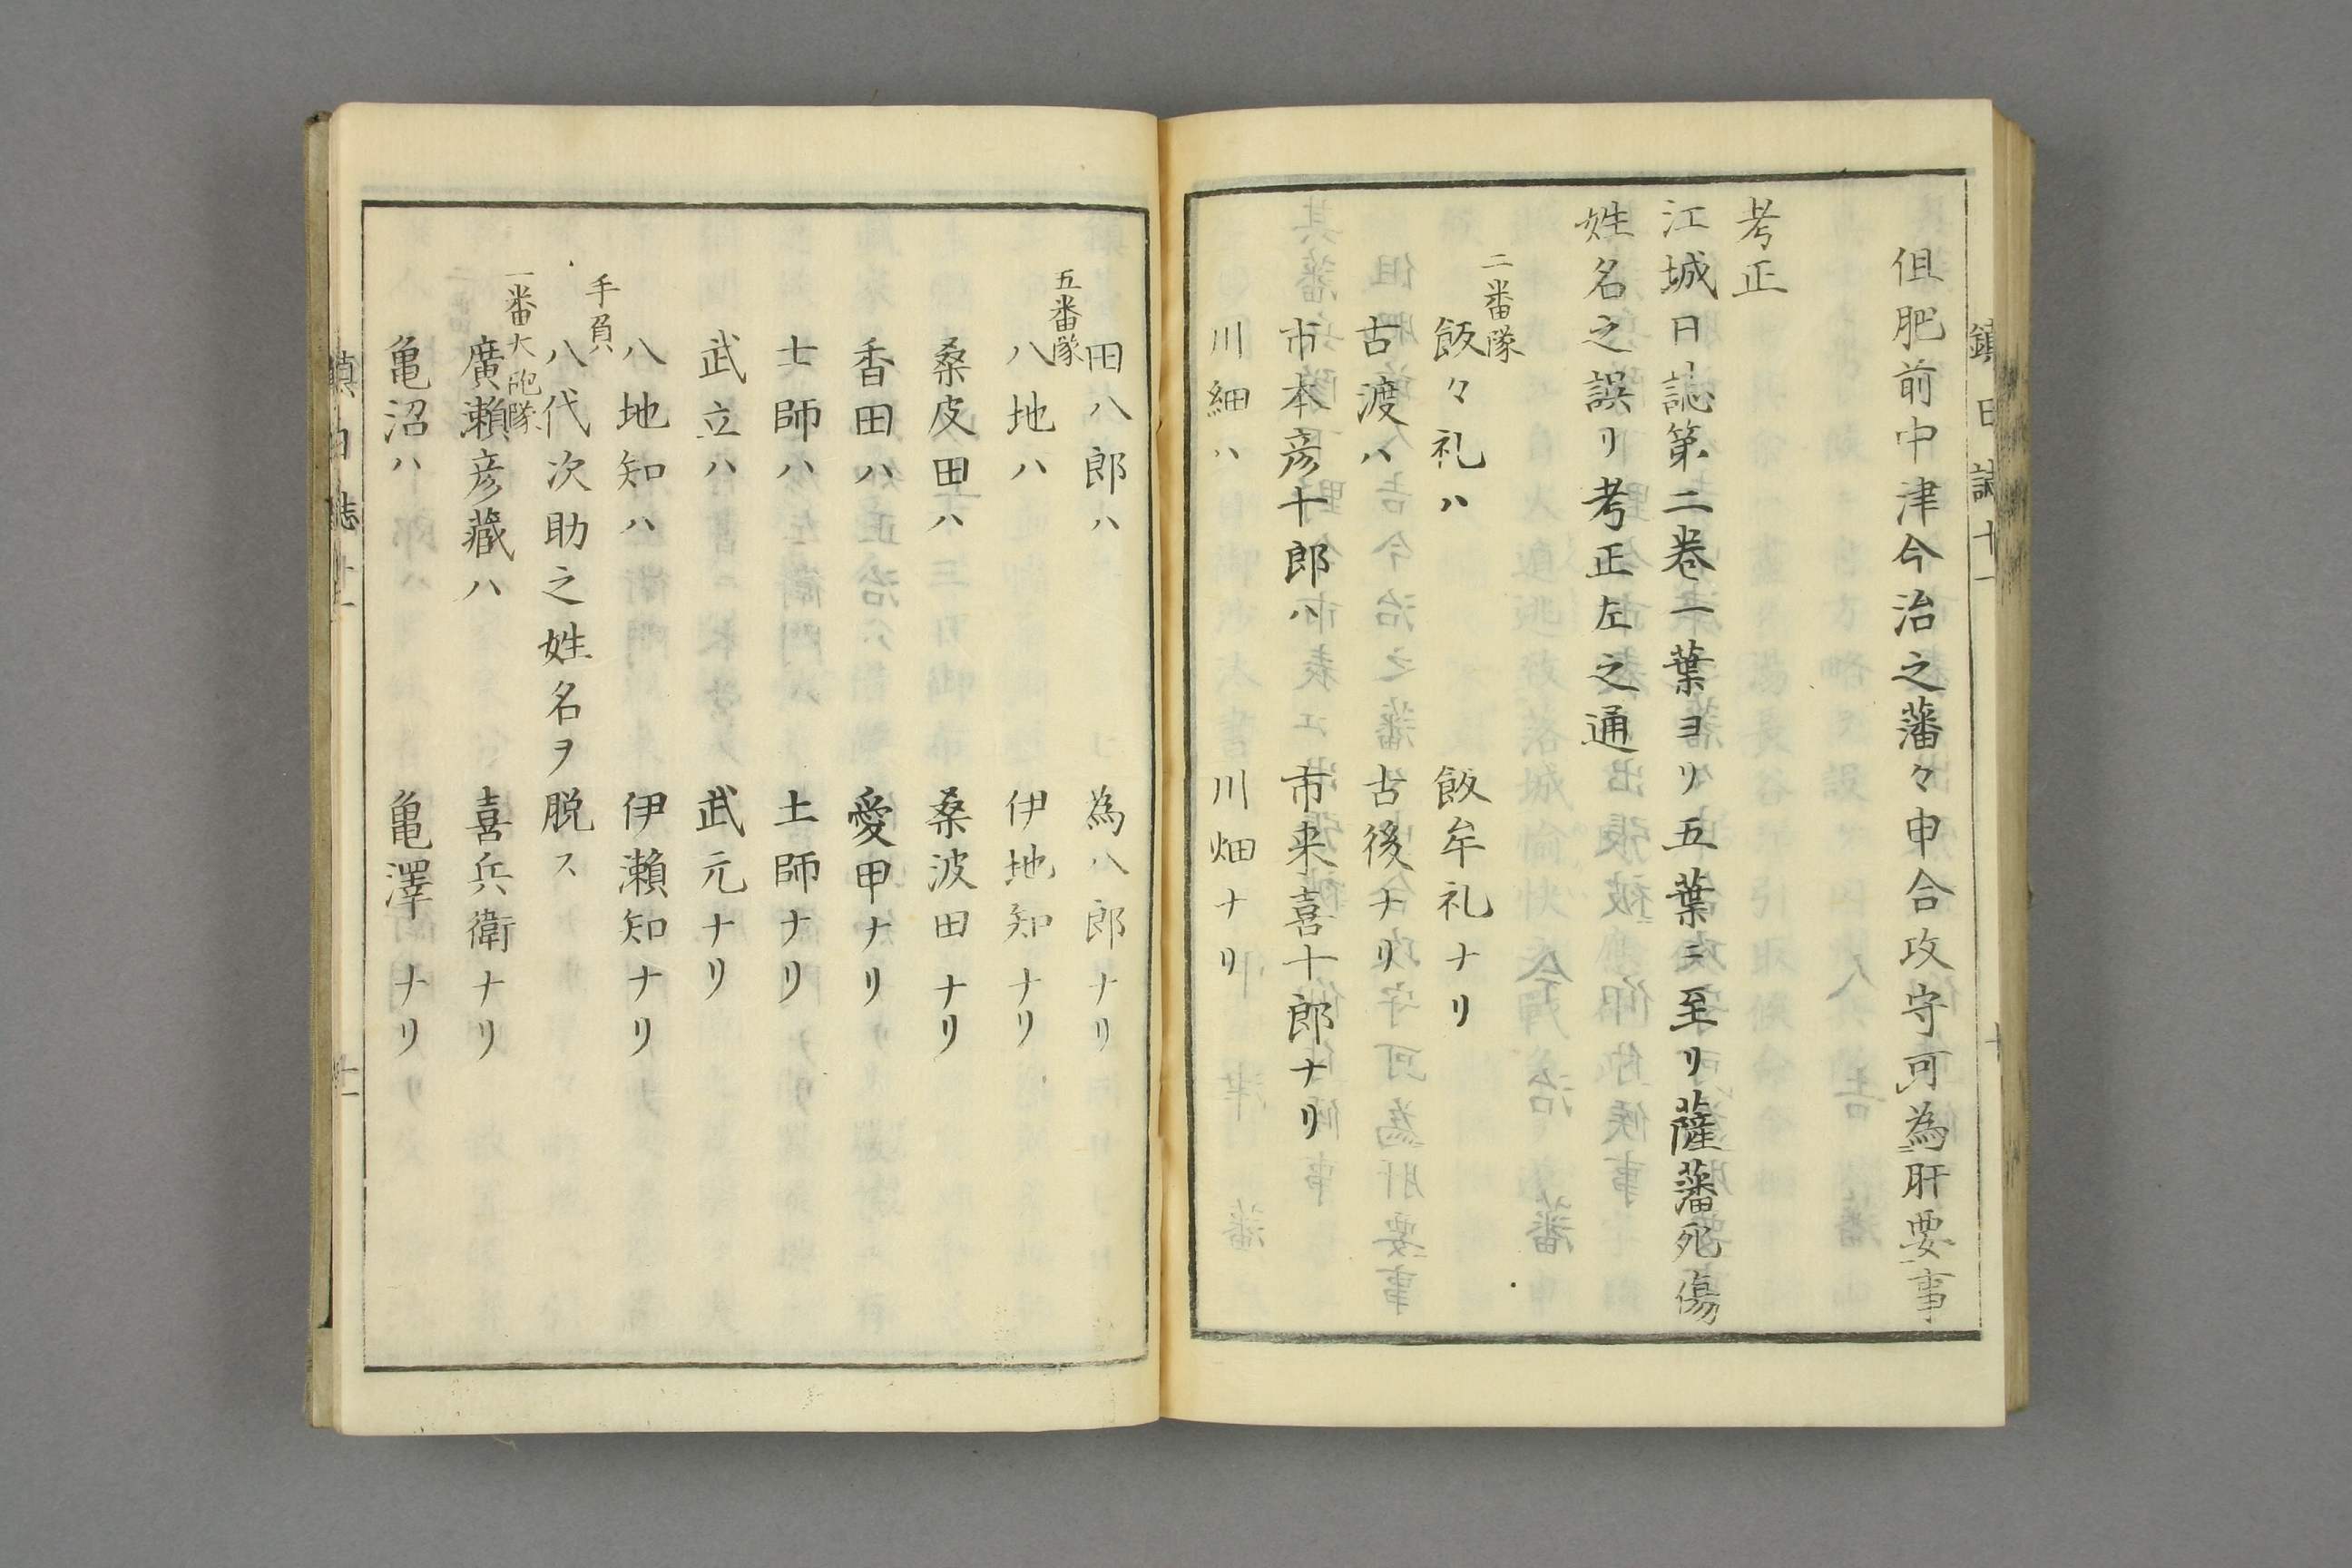 鎮日誌十一
但肥前中津今治之藩々申合攻守可為肝要事
考正
江城日誌第二巻一葉ヨリ五葉ニ至リ薩藩死傷
姓名之誤リ考正左之通
二番隊
飯々礼ハ 飯牟礼ナリ
古渡ハ 古後ナリ
市本彦十郎ハ 市来喜十郎ナリ
川細ハ 川畑ナリ
田八郎ハ 為八郎ナリ
五番隊
八地ハ 伊地知ナリ
桑皮田ハ 桑波田ナリ
香田ハ 愛甲ナリ
士師ハ 土師ナリ
武立ハ 武元ナリ
八地知ハ 伊瀬知ナリ
手負
八代次助之姓名ヲ脱ス
一番大砲隊
廣瀬彦藏ハ 喜兵衛ナリ
亀沼ハ 亀澤ナリ
鎮日誌十一
十一